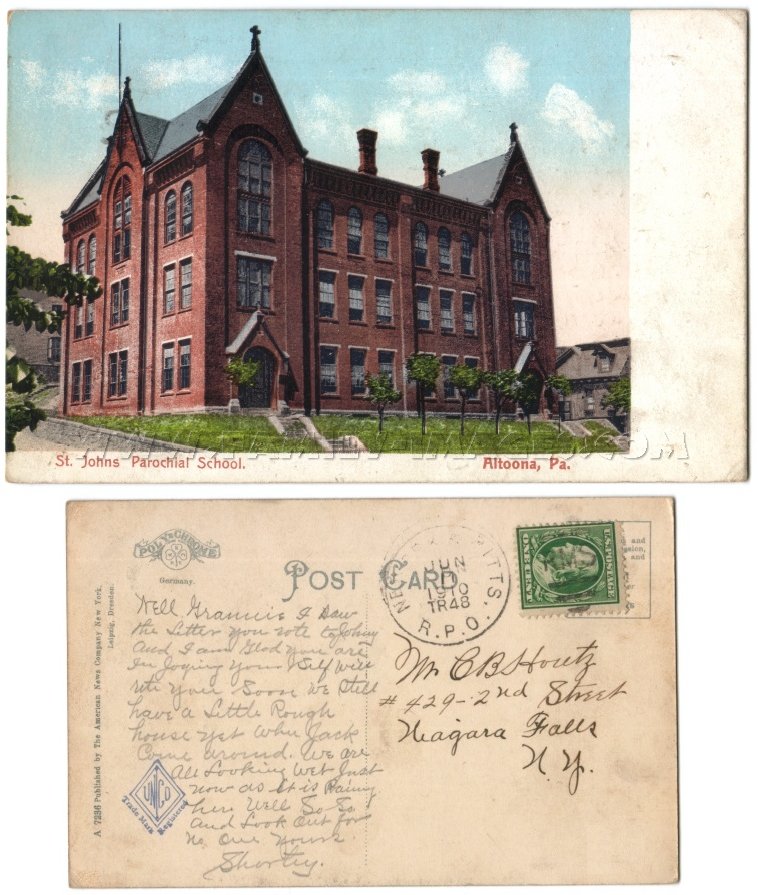 WWW.FAMILY-IMAGES.COM
St. Johns Parochial School.
Altoona, Pa.
POLY CHROME
Germany.
POST CARD
JUN
1910
TR48
R.P.O.
PITTS.
U.S. POSTAGE
ONE CENT
A 7236 Published by The American News Company New York.
Leipzig, Dresden.
Well Grannie I Saw
the Letter you rote to Johny
and I am Glad you are
In Joying your Self Will
rote you Soon We Still
have a Little Rough
house yet When Jack
Come around. We are
All Looking Wet Just
now as it is Raining
here Well So So
and Look Out for
No One Yours
Shorty.
Trade Mark Registered
Mr C B Houtz
# 429-2nd Street
Niagara Falls
N.Y.